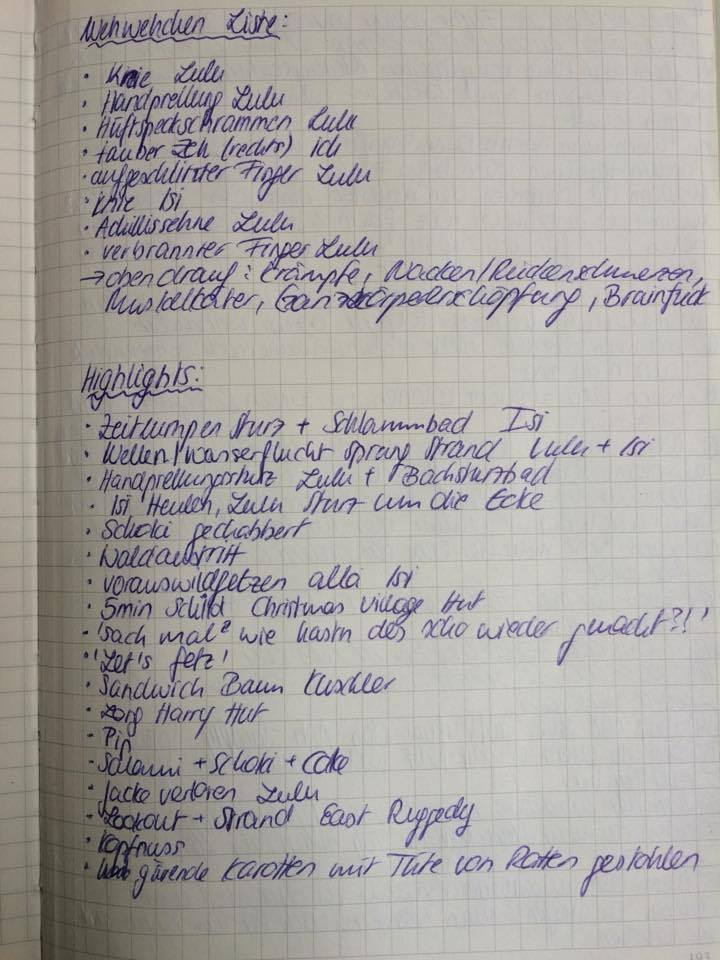 Wehwehchen Liste:
• Knie Lulu
• Handprellung Lulu
• Hüftspeckschrammen Lulu
• tauber Zeh (rechts) ich
• aufgeschlitzter Finger Lulu
• Knie Isi
• Achillissehne Lulu
• verbrannter Finger Lulu
→ obendrauf: Krämpfe, Nacken/Rückenschmerzen,
Muskelkater, Ganzkörpererschöpfung, Brainfuck
Highlights:
• Zeitlupen Sturz + Schlammbad Isi
• Wellen/Wasserflucht Sprung Strand Lulu + Isi
• Handprellungssturz Lulu + Bachsturzbad
• Isi Heulen, Lulu Sturz um die Ecke
• Schoki geschabbert
• Waldaustritt
• vorauswildfetzen alla Isi
• 5min Schild Christmas Village Hut
• 'sach mal wie hastn des scho wieder gmacht?!'
• 'Let's fetz'
• Sandwich Baum Kuschler
• Long Harry Hut
• Pip
• Salami + Schoki + Coke
• Jacke verloren Lulu
• Lookout + Strand East Ruggedy
• Kopfnuss
• gärende Karotten mit Tüte von Ratten gestohlen
193